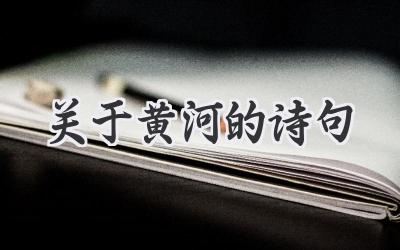 关于黄河的诗句